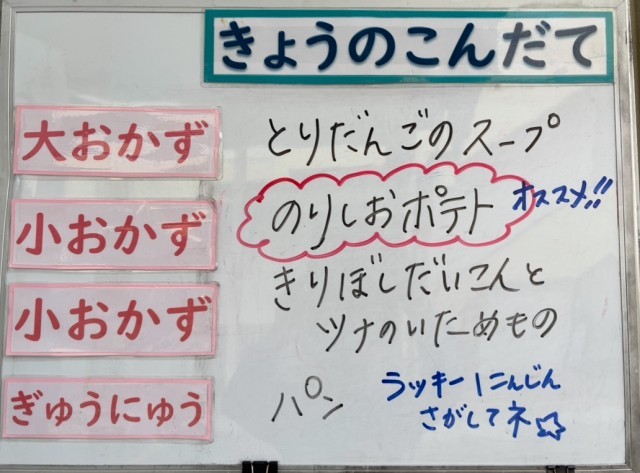 きょうのこんだて
大おかず とりだんごのスープ
小おかず のりしおポテト オススメ!!
小おかず きりぼしだいこんと
ツナのいためもの
ぎゅうにゅう パン
ラッキーにんじん
さがしてネ☆